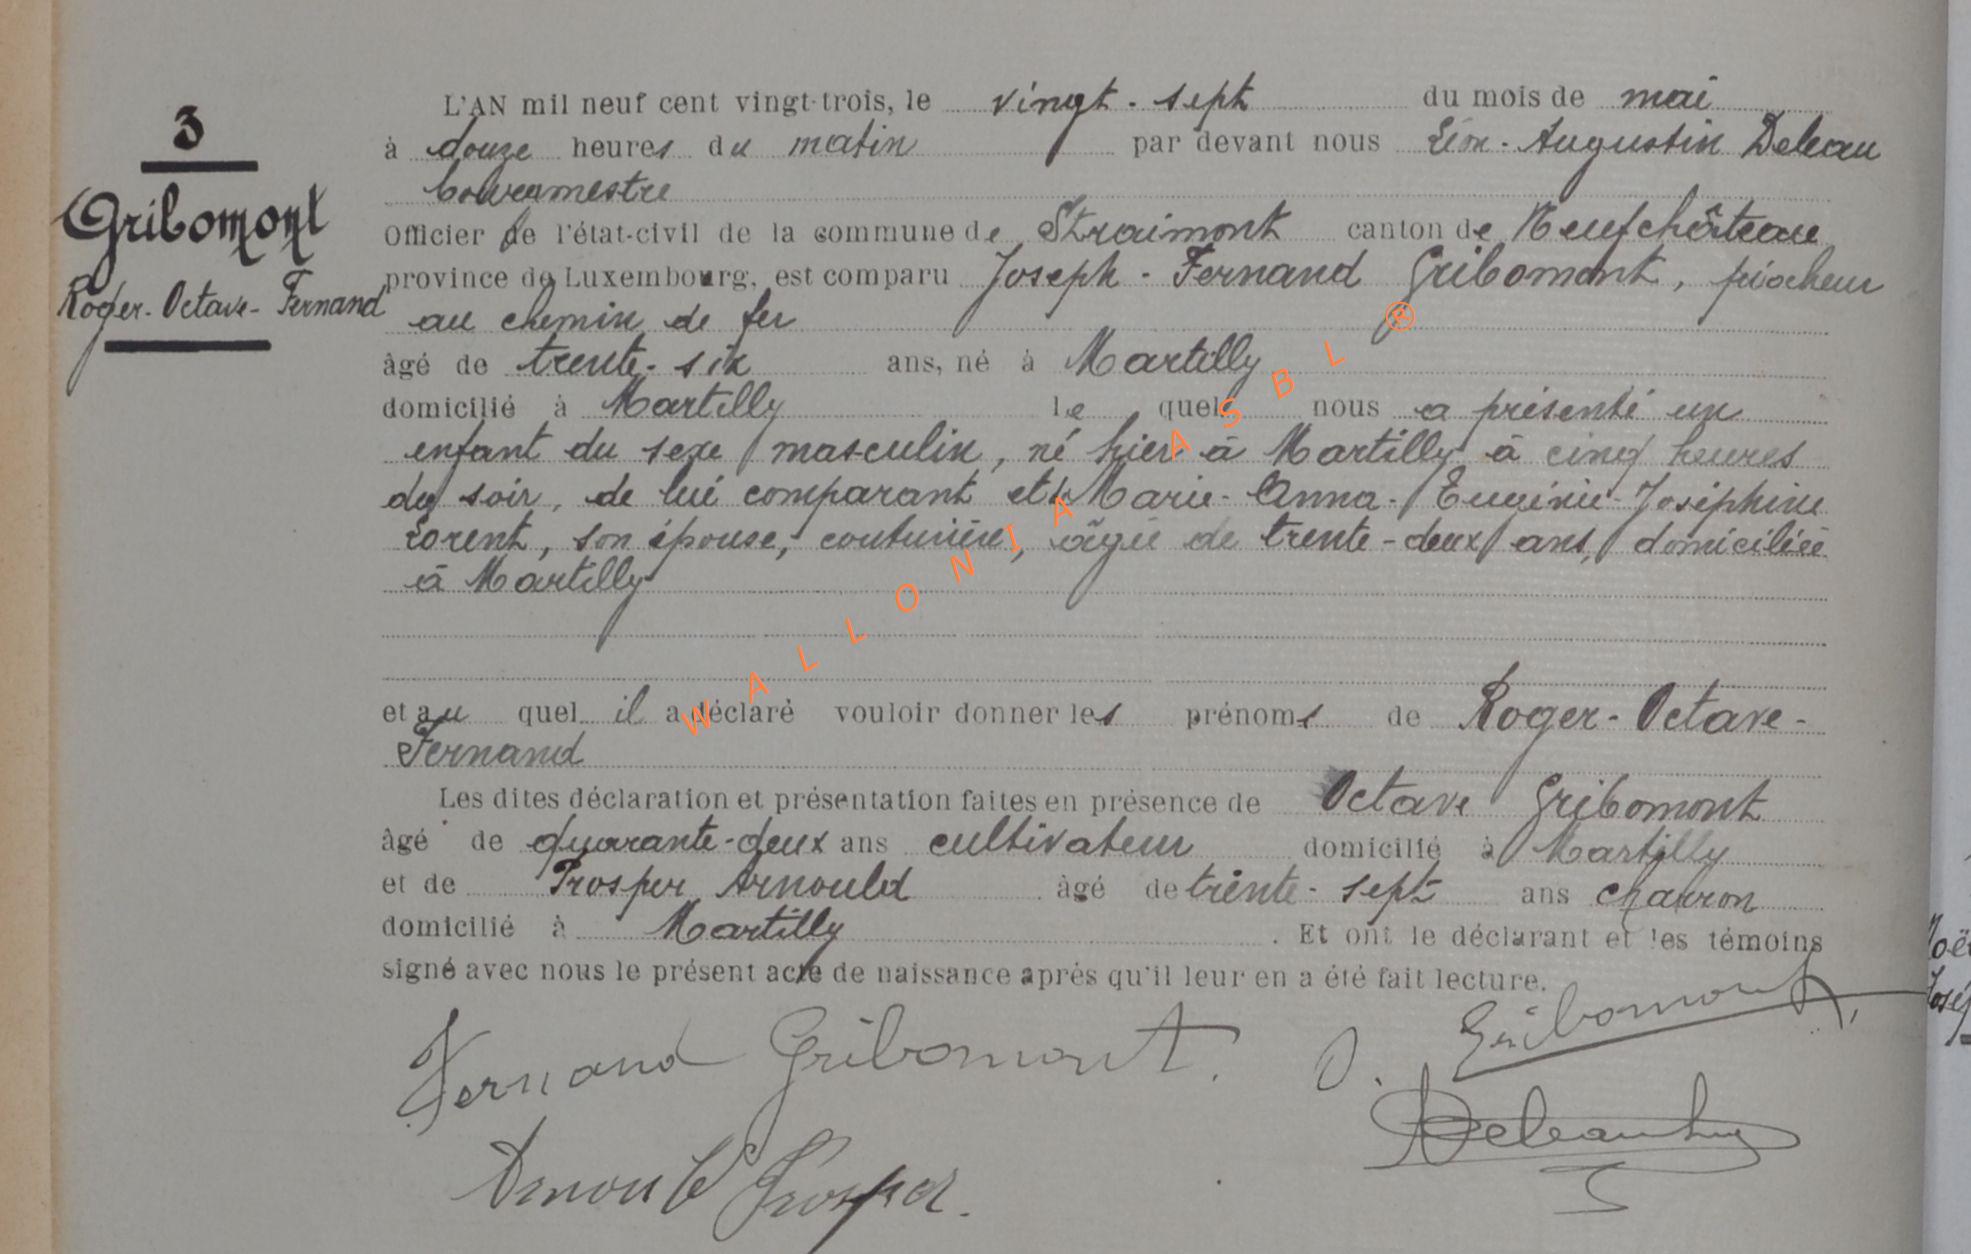 3
Gribomont
Roger-Octave-Fernand
L'AN mil neuf cent vingt-trois, le vingt-sept du mois de mai
à douze heures du matin par devant nous Léon-Augustin Deleau
bourgmestre
Officier de l'état-civil de la commune de Straimont canton de Neufchâteau
province de Luxembourg, est comparu Joseph-Fernand Gribomont, piocheur
au chemin de fer
âgé de trente-six ans, né à Martilly
domicilié à Martilly lequel nous a présenté un
enfant du sexe masculin, né hier à Martilly à cinq heures
du soir, de lui comparant et de Marie-Anna-Eugénie-Joséphine
Lorent, son épouse, couturière, âgée de trente-deux ans, domiciliée
à Martilly
et au quel il a déclaré vouloir donner les prénoms de Roger-Octave-
Fernand
Les dites déclaration et présentation faites en présence de Octave Gribomont
âgé de quarante-deux ans cultivateur domicilié à Martilly
et de Prosper Arnould âgé de trente-sept ans charron
domicilié à Martilly. Et ont le déclarant et les témoins
signé avec nous le présent acte de naissance après qu'il leur en a été fait lecture.
Fernand Gribomont. O. Gribomont
Arnould Prosper.
WALLONIA ASBL ®